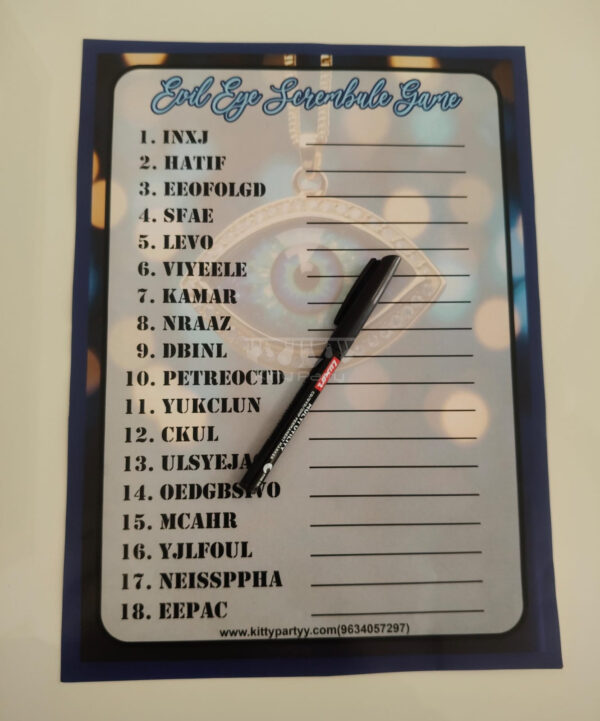 Evil Eye Scrembule Game
1. INXJ
2. HATIF
3. EEOFOLGD
4. SFAE
5. LEVO
6. VIYEELE
7. KAMAR
8. NRAAZ
9. DBINL
10. PETREOCTD
11. YUKCLUN
12. CKUL
13. ULSYEJA
14. OEDGBSIVO
15. MCAHR
16. YJLFOUL
17. NEISSPPHA
18. EEPAC
www.kittypartyy.com(9634057297)